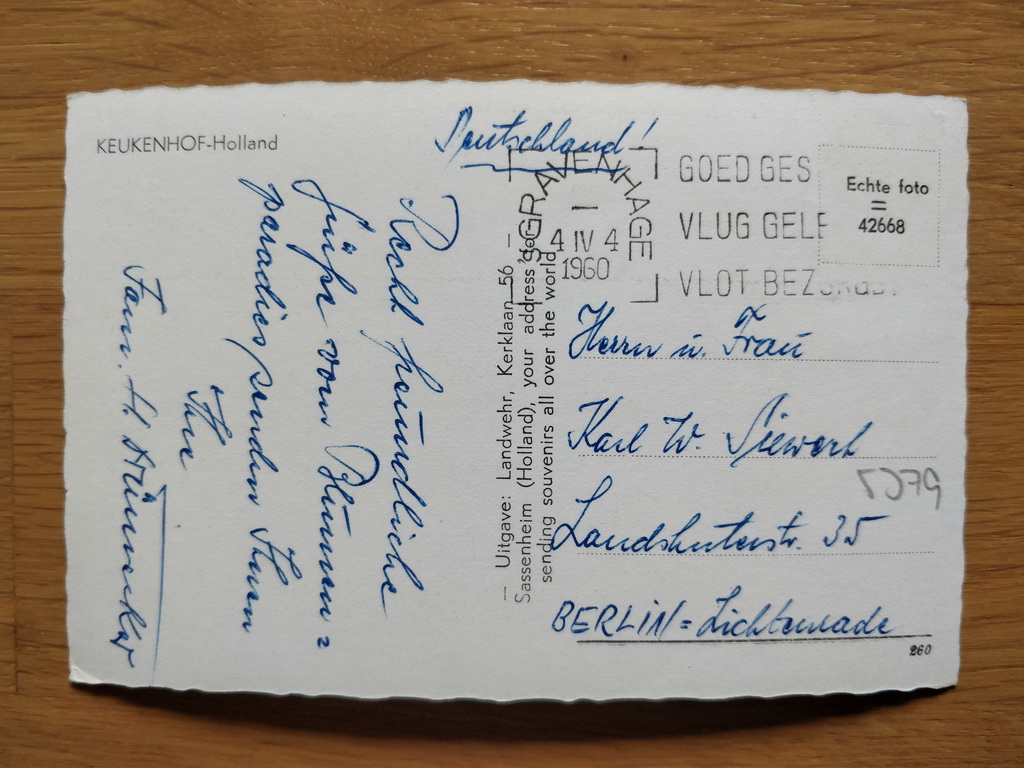 KEUKENHOF-Holland
Deutschland!
'S GRAVENHAGE
4 IV 4
1960
GOED GES
VLUG GELE
VLOT BEZORGD
Echte foto
=
42668
Recht freundliche
Grüße vom Blumen=
paradies senden Ihnen
Ihre
Fam. H.
— Uitgave: Landwehr, Kerklaan 56 —
Sassenheim (Holland), your address for
sending souvenirs all over the world
Herrn u. Frau
Karl W. Siewert
Landshuterstr. 35
BERLIN=Lichtenrade
260